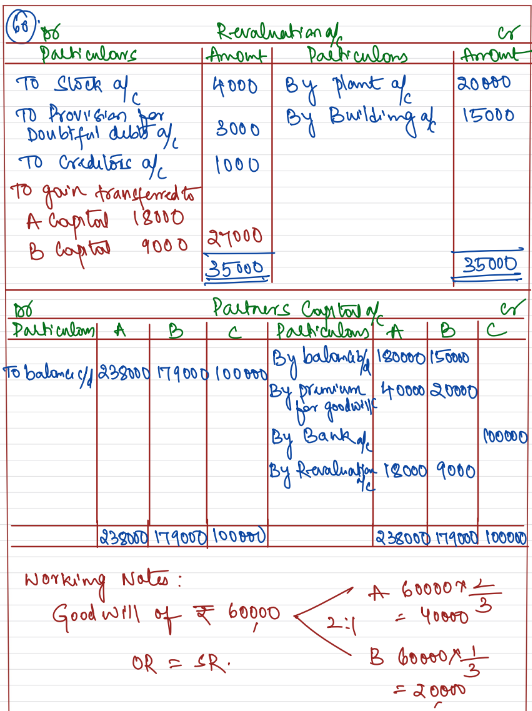 60
Dr Revaluation a/c Cr
Particulars Amount Particulars Amount
To Stock a/c 4000 By plant a/c 20000
To Provision for
Doubtful debts a/c 3000 By Building a/c 15000
To Creditors a/c 1000
To gain transferred to
A Capital 18000
B Capital 9000 27000
35000 35000
Dr Partners Capital a/c Cr
Particulars A B C Particulars A B C
To balance c/d 238000 179000 100000 By balance b/d 180000 15000
By premium for goodwill 40000 20000
By Bank a/c 100000
By Revaluation a/c 18000 9000
238000 179000 100000 238000 179000 100000
Working Notes:
Goodwill of ₹ 60000
2:1
A 60000 × 2/3
= 40000
OR = SR.
B 60000 × 1/3
= 20000